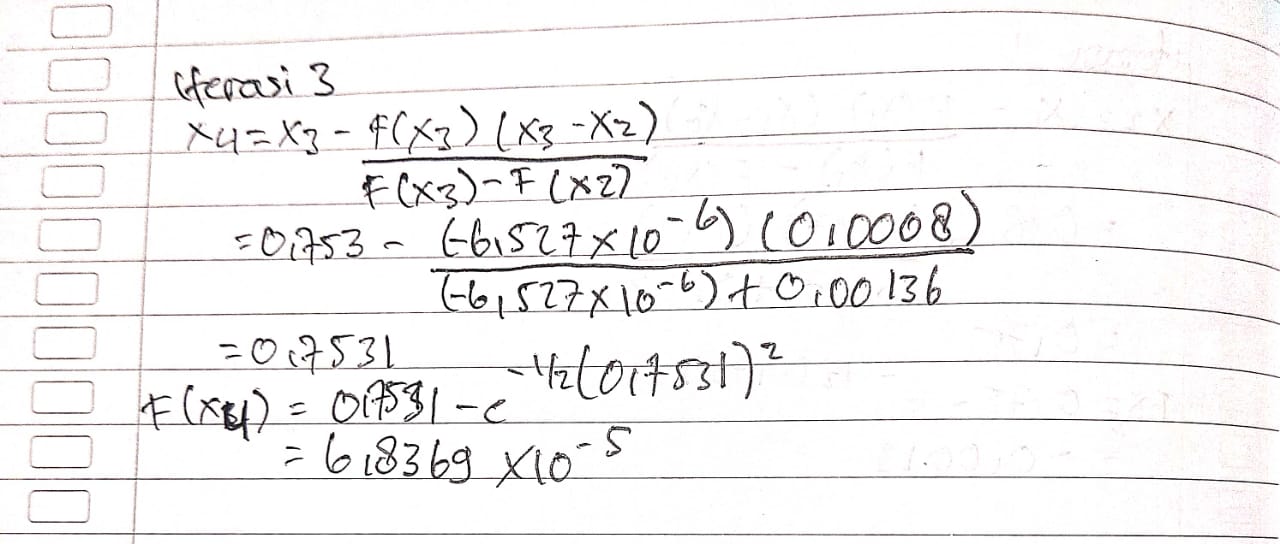 Iterasi 3
x4 = x3 - f(x3) (x3 - x2)
F(x3) - F(x2)
= 0,753 - (-6,527 × 10^-6) (0,0008)
(-6,527 × 10^-6) + 0,00136
= 0,7531
F(x4) = 0,7531 - e^-1/2(0,7531)^2
= 6,8369 × 10^-5